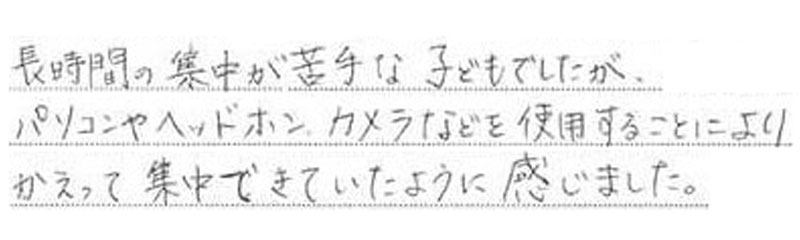 長時間の集中が苦手な子どもでしたが、
パソコンやヘッドホン、カメラなどを使用することにより
かえって集中できていたように感じました。